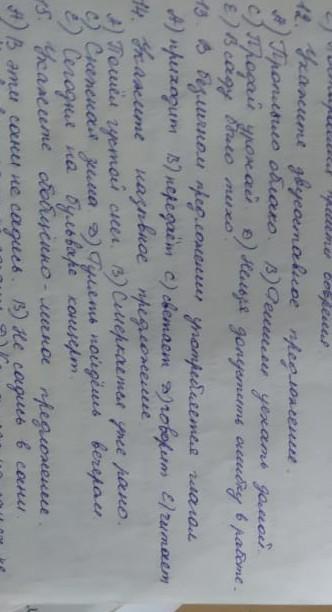 12. Укажите двусоставное предложение.
А) Проплыло облако. В) Решили уехать домой.
С) Продай урожай. D) Нельзя допустить ошибку в работе.
Е) В саду было тихо.
13. В безличном предложении употребляется глагол
А) приходит В) передаёт С) светает D) говорит Е) читает
14. Укажите назывное предложение.
А) Пошёл густой снег. В) Смеркается уже рано.
С) Снежная зима. D) Гулять пойдёшь вечером.
Е) Сегодня на бульваре концерт.
15. Укажите обобщённо-личное предложение.
А) В эти сани не садись. В) Не садись в сани.